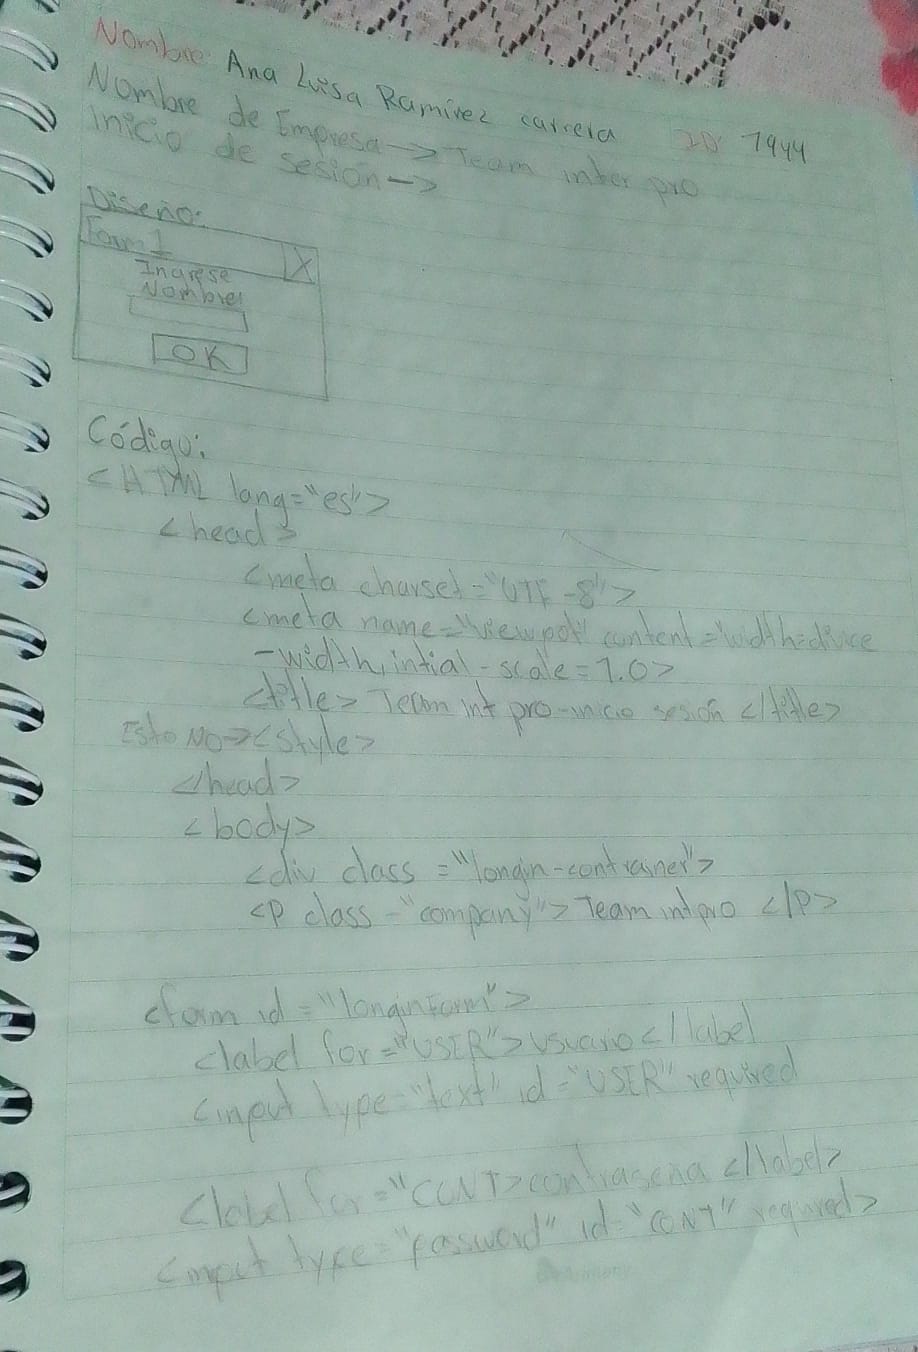 Nombre Ana Luisa Ramirez carrera 20 1944
Nombre de Empresa -> Team inter pro
Inicio de sesión ->
Diseño:
Form 1 X
Ingrese
Nombre
OK
Código:
<HTML lang="es">
<head>
<meta charset="UTF-8">
<meta name="viewpot" content="width=divice
-width, intial-scale=1.0>
<title> Team int pro-inicio sesión </title>
Esto NO -> <style>
</head>
<body>
<div class="longin-contrainer">
<P class-"company"> Team intpro </P>
<form id="longinForm">
<label for="USER"> usuario </label
<input type="text" id="USER" required
<label for="CONT> contrasena </label>
<input type="password" id="CONT" required>